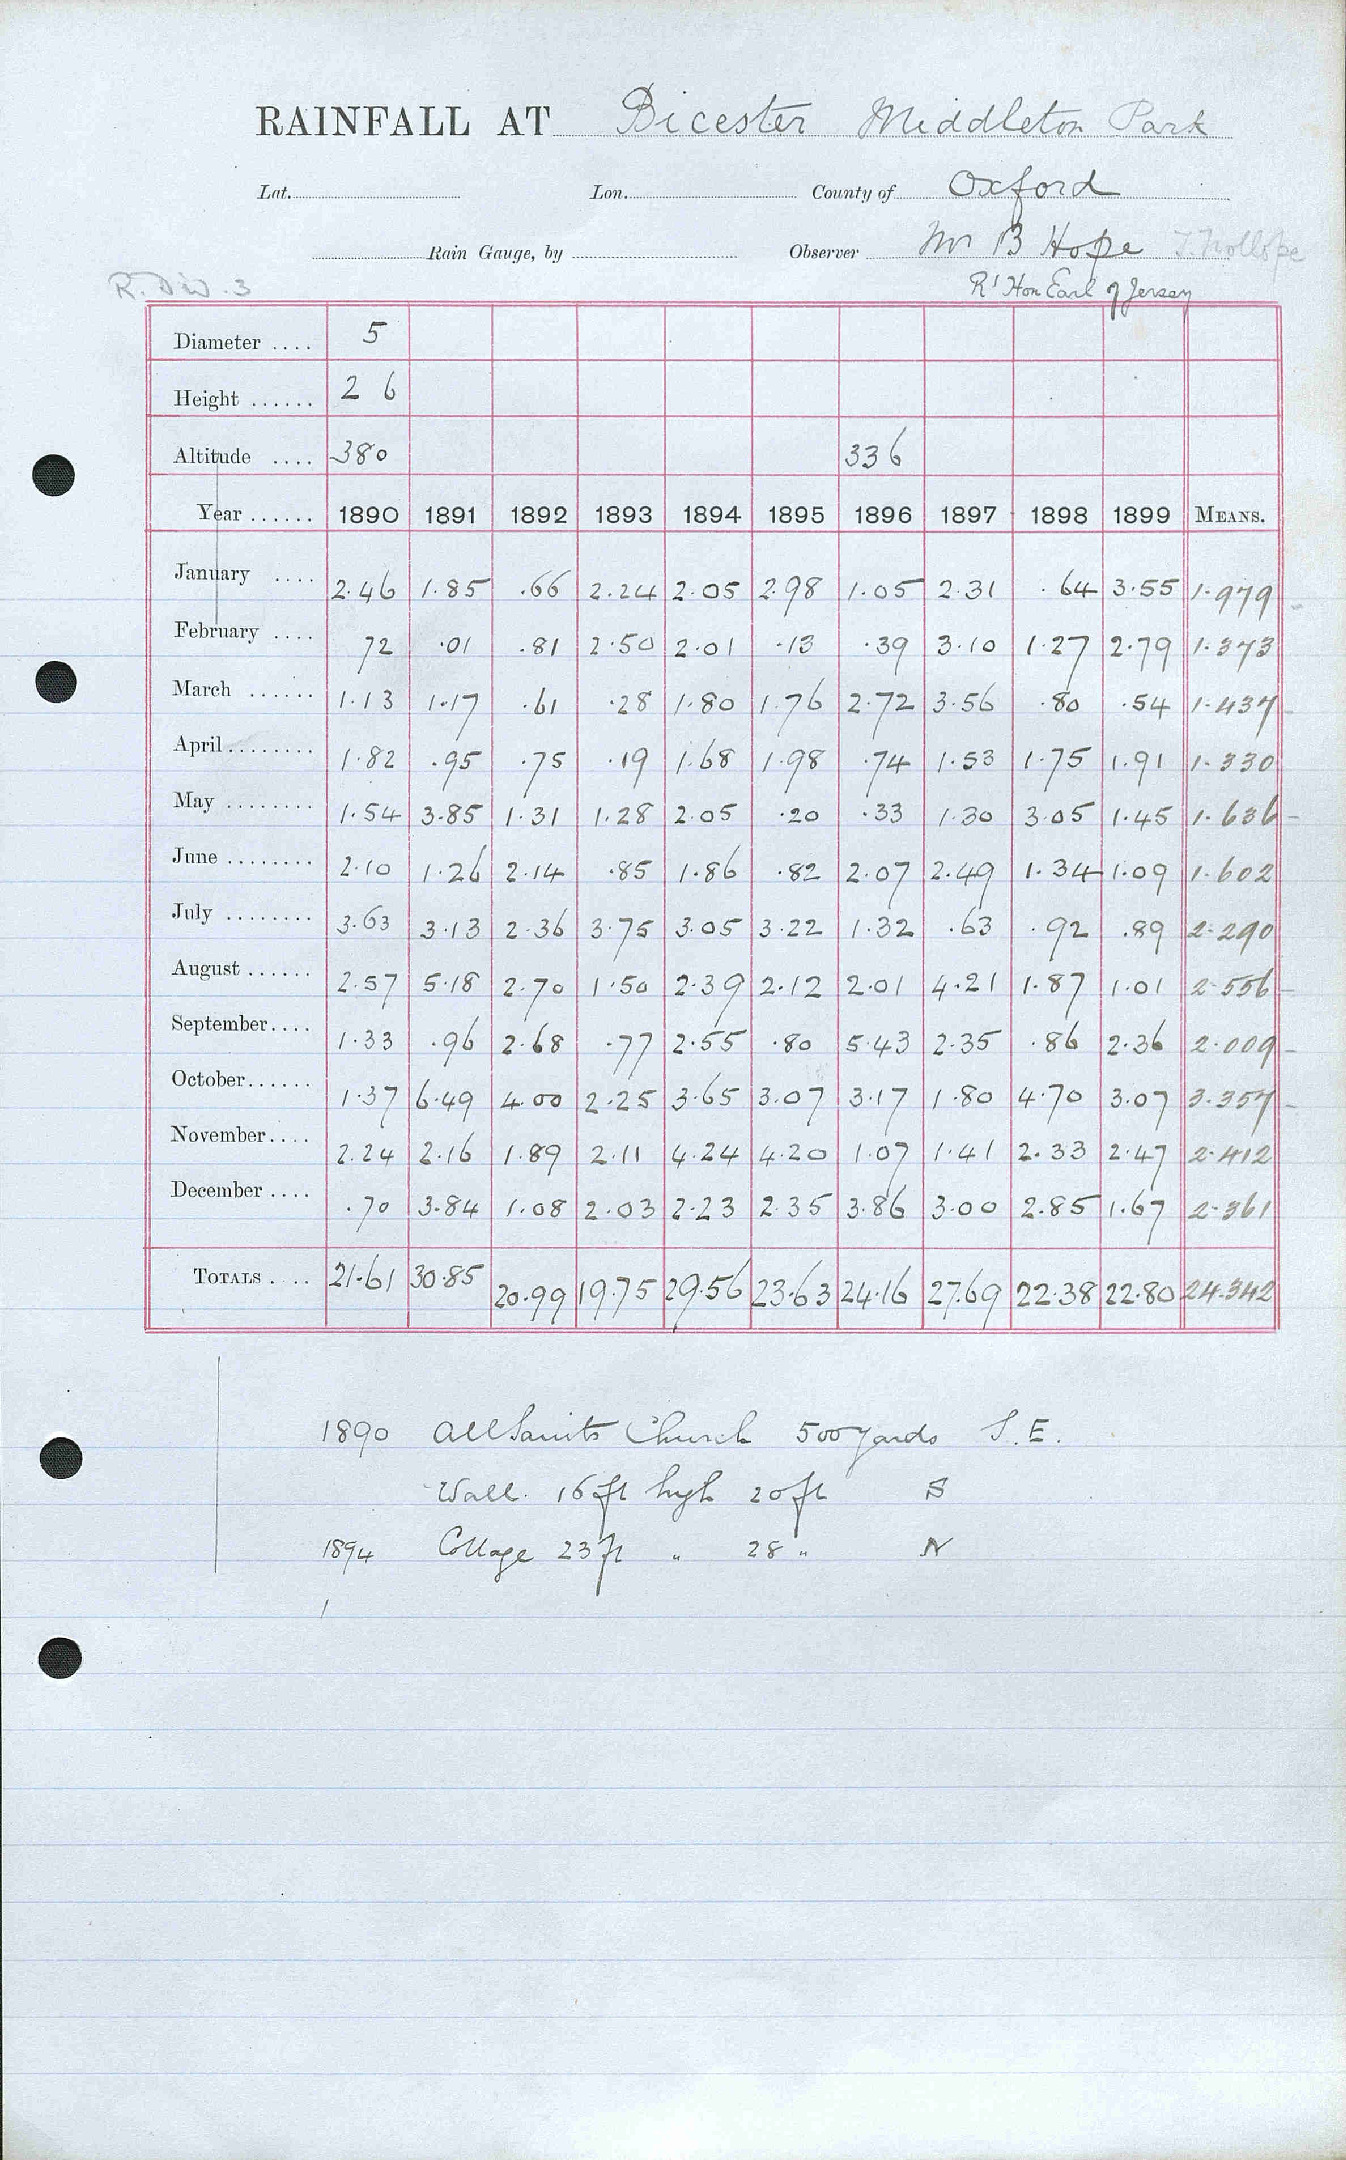 RAINFALL AT Bicester Middleton Park
Lat. Lon. County of Oxford
Rain Gauge, by Observer Mr B Hope J. Trollope
R. Div. 3 Rt Hon Earl of Jersey
Diameter .... 5
Height ...... 2 6
Altitude .... 380 336
Year ...... 1890 1891 1892 1893 1894 1895 1896 1897 1898 1899 MEANS.
January .... 2.46 1.85 .66 2.24 2.05 2.98 1.05 2.31 .64 3.55 1.979
February .... 72 .01 .81 2.50 2.01 .13 .39 3.10 1.27 2.79 1.373
March ...... 1.13 1.17 .61 .28 1.80 1.76 2.72 3.56 .80 .54 1.437
April ........ 1.82 .95 .75 .19 1.68 1.98 .74 1.53 1.75 1.91 1.330
May ........ 1.54 3.85 1.31 1.28 2.05 .20 .33 1.30 3.05 1.45 1.636
June ........ 2.10 1.26 2.14 .85 1.86 .82 2.07 2.49 1.34 1.09 1.602
July ........ 3.63 3.13 2.36 3.75 3.05 3.22 1.32 .63 .92 .89 2.290
August ...... 2.57 5.18 2.70 1.50 2.39 2.12 2.01 4.21 1.87 1.01 2.556
September .... 1.33 .96 2.68 .77 2.55 .80 5.43 2.35 .86 2.36 2.009
October ...... 1.37 6.49 4.00 2.25 3.65 3.07 3.17 1.80 4.70 3.07 3.357
November .... 2.24 2.16 1.89 2.11 4.24 4.20 1.07 1.41 2.33 2.47 2.412
December .... .70 3.84 1.08 2.03 2.23 2.35 3.86 3.00 2.85 1.67 2.361
TOTALS .... 21.61 30.85 20.99 19.75 29.56 23.63 24.16 27.69 22.38 22.80 24.342
1890 All Saints Church 500 yards S.E.
Wall 16 ft high 20 ft S
1894 Cottage 23 ft " 28 " N